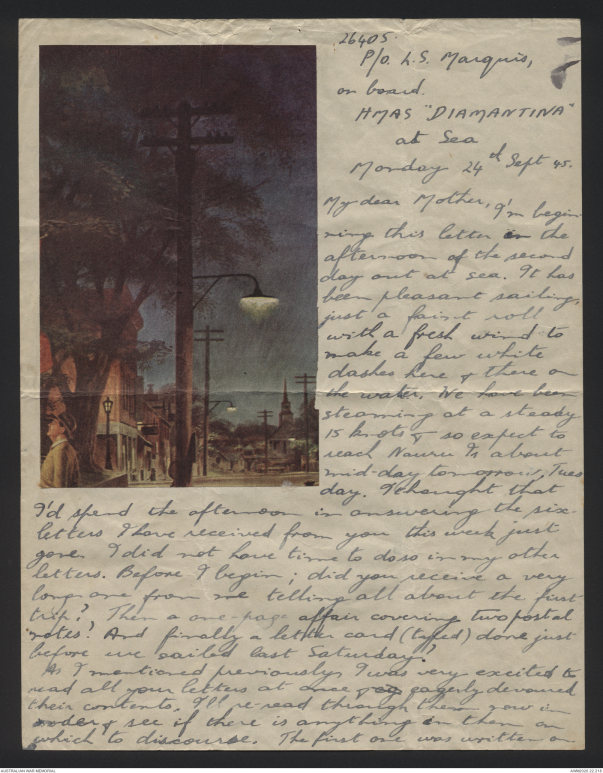 26405.
P/o. L.S. Marquis,
on board.
HMAS "DIAMANTINA"
at Sea
Monday 24th Sept 45.
My dear Mother, I'm begin-
ning this letter in the
afternoon of the second
day out at sea. It has
been pleasant sailing,
just a faint roll
with a fresh wind to
make a few white
dashes here & there on
the water. We have been
steaming at a steady
15 knots & so expect to
reach Nauru Is about
mid-day tomorrow, Tues
day. I thought that
I'd spend the afternoon in answering the six
letters I have received from you this week just
gone. I did not have time to do so in my other
letters. Before I begin; did you receive a very
long one from me telling all about the first
trip? Then a one-page affair covering two postal
notes? And finally a letter card (typed) done just
before we sailed last Saturday?
As I mentioned previously, I was very excited to
read all your letters at once & eagerly devoured
their contents. I'll re-read through them now in
order & see if there is anything in them on
which to discourse. The first one was written on
AUSTRALIAN WAR MEMORIAL